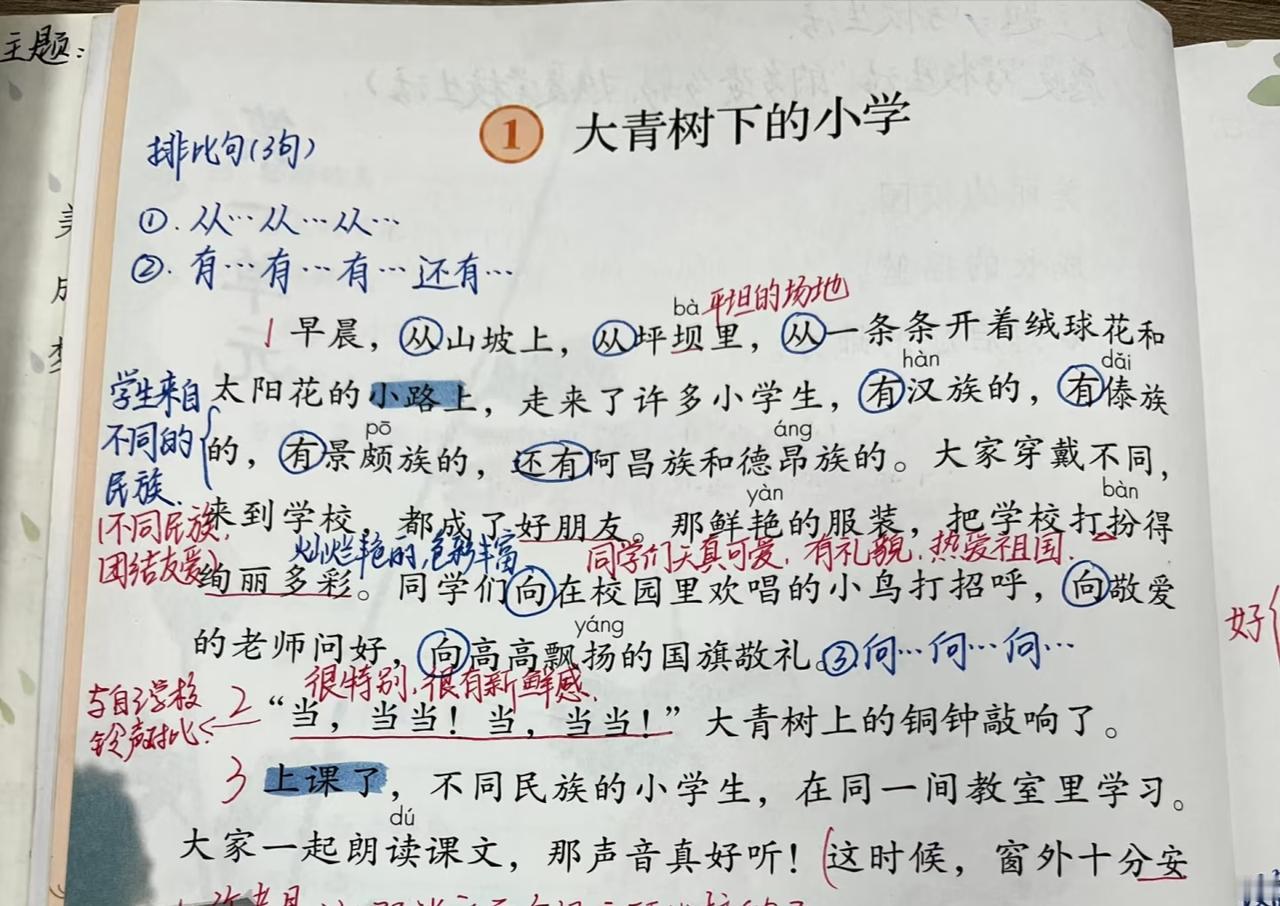 主题：
1 大青树下的小学
排比句(3句)
①.从…从…从…
②.有…有…有…还有…
bà 平坦的场地
1 早晨，从山坡上，从坪坝里，从一条条开着绒球花和
hàn dǎi
学生来自
太阳花的小路上，走来了许多小学生，有汉族的，有傣族
不同的
pō áng
的，有景颇族的，还有阿昌族和德昂族的。大家穿戴不同，
民族.
yàn bàn
来到学校，都成了好朋友。那鲜艳的服装，把学校打扮得
(不同民族,
团结友爱)
灿烂艳丽,色彩丰富
同学们天真可爱，有礼貌，热爱祖国.
绚丽多彩。同学们向在校园里欢唱的小鸟打招呼，向敬爱
yáng
的老师问好，向高高飘扬的国旗敬礼。③向…向…向…
很特别，很有新鲜感.
与自己学校
铃声对比
2 “当，当当！当，当当！”大青树上的铜钟敲响了。
3 上课了，不同民族的小学生，在同一间教室里学习。
dú
大家一起朗读课文，那声音真好听！(这时候，窗外十分安
好